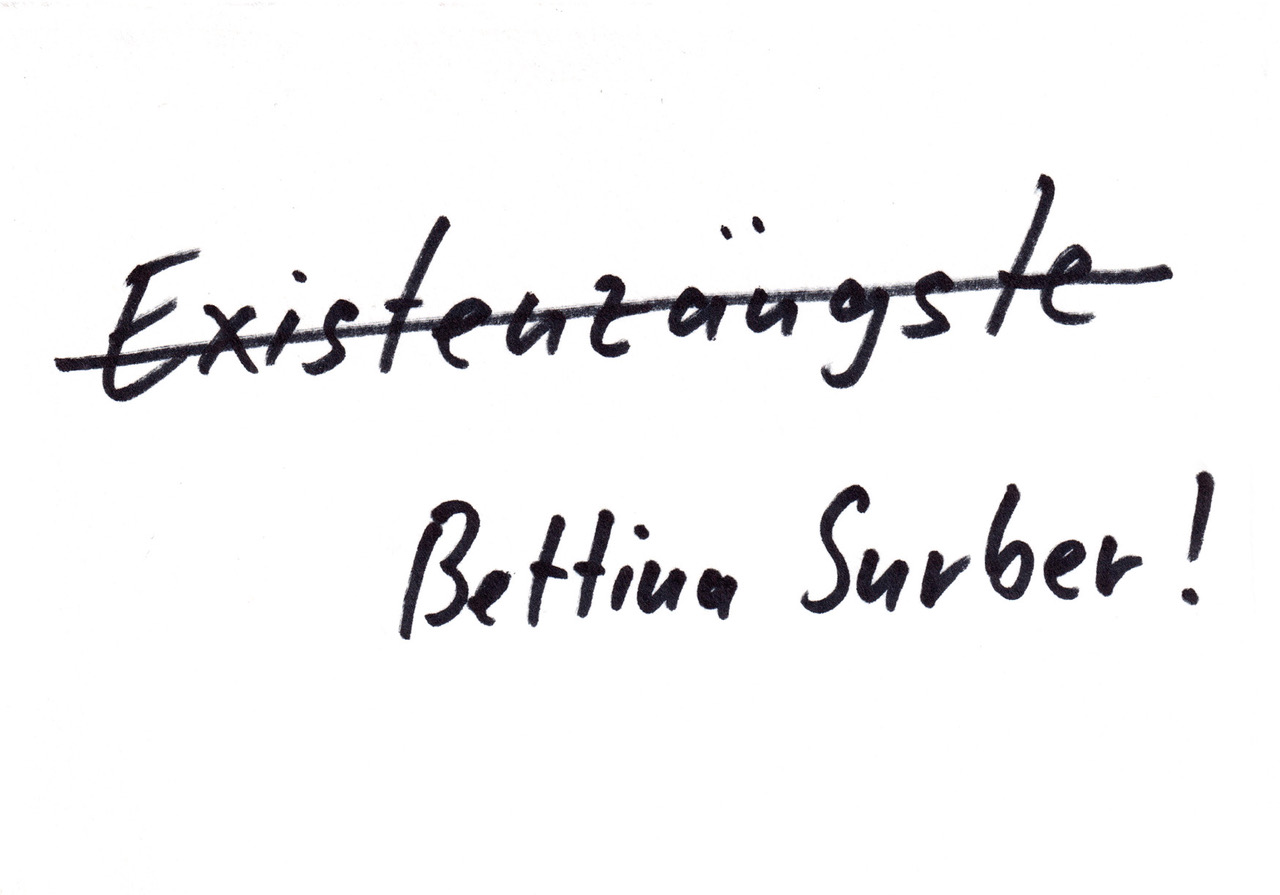 Existenzängste
Bettina Surber!